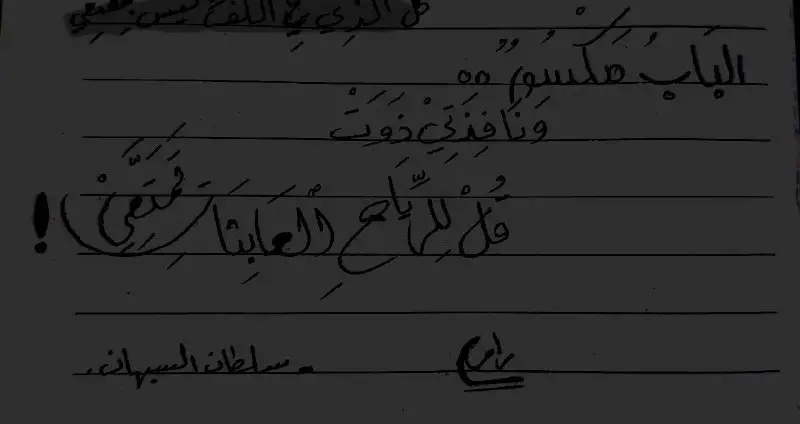 كل الذي في الكف ليس بمقنعي
البَابُ مَكْسُورٌ ..
وَنَافِذَتِيْ ذَوَتْ
قُلْ لِلرِّيَاحِ الْعَابِثَاتِ تَمَتَّعِيْ !
- سلطان السبهان.